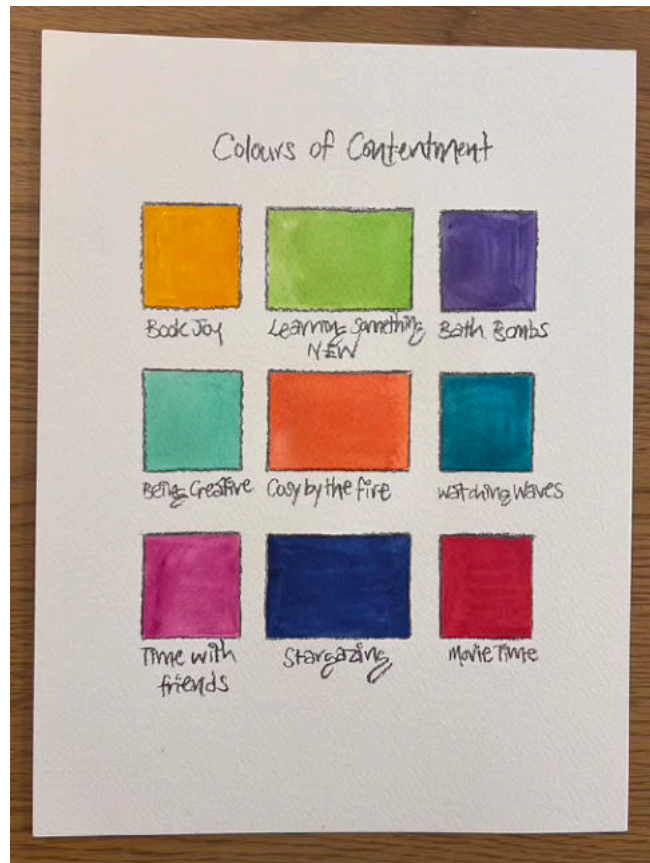 Colours of Contentment
Book Joy
Learning Something
NEW
Bath Bombs
Being Creative
Cosy by the fire
Watching Waves
Time with
friends
Stargazing
Movie Time